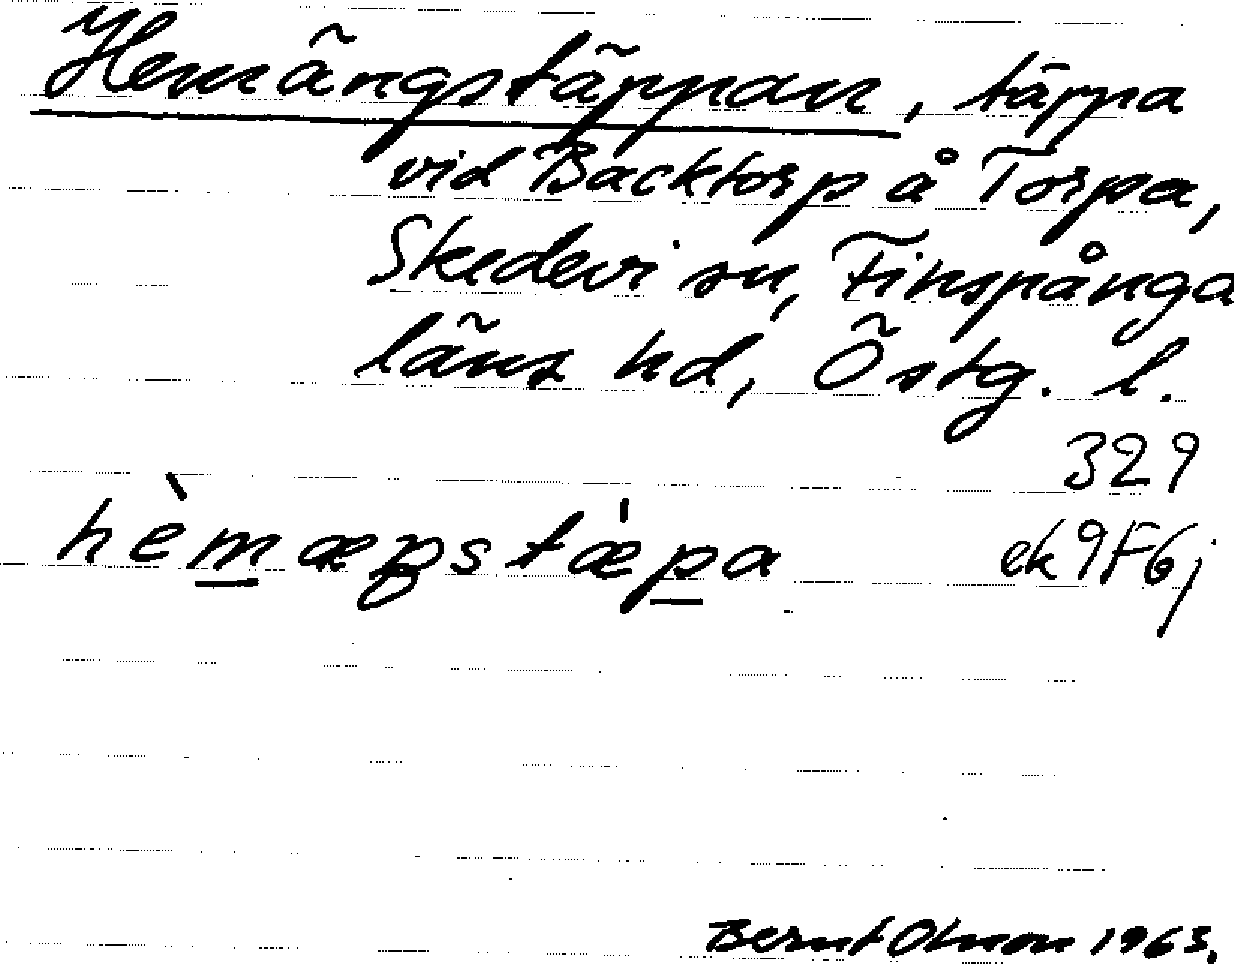 Hemängstäppan, täppa
vid Backtorp å Torpa,
Skedevi sn, Finspånga
läns hd, Östg. l.
329
hèmæŋstæ̀pa ek9F6j
Bernt Olsson 1963.